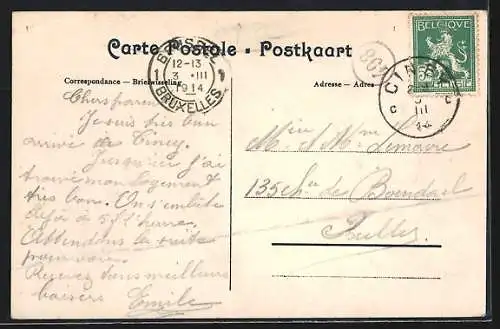 Carte Postale - Postkaart
Correspondance — Briefwisseling
Adresse — Adres
BRUSSEL
1 12-13 1
3 III
1914
BRUXELLES
408
CINEY
C C
III
14
BELGIQUE
5
Chers parents
Je suis bien
arrivé de Ciney.
Jusqu'ici j'ai
trouvé mon logement
très bon. On s'embête
déjà à 5 1/2 heure.
Attendons la suite
pour voir.
Recevez tous meilleurs
baisers Emile
M. & Mme Lemaire
135 ch. de Boendael